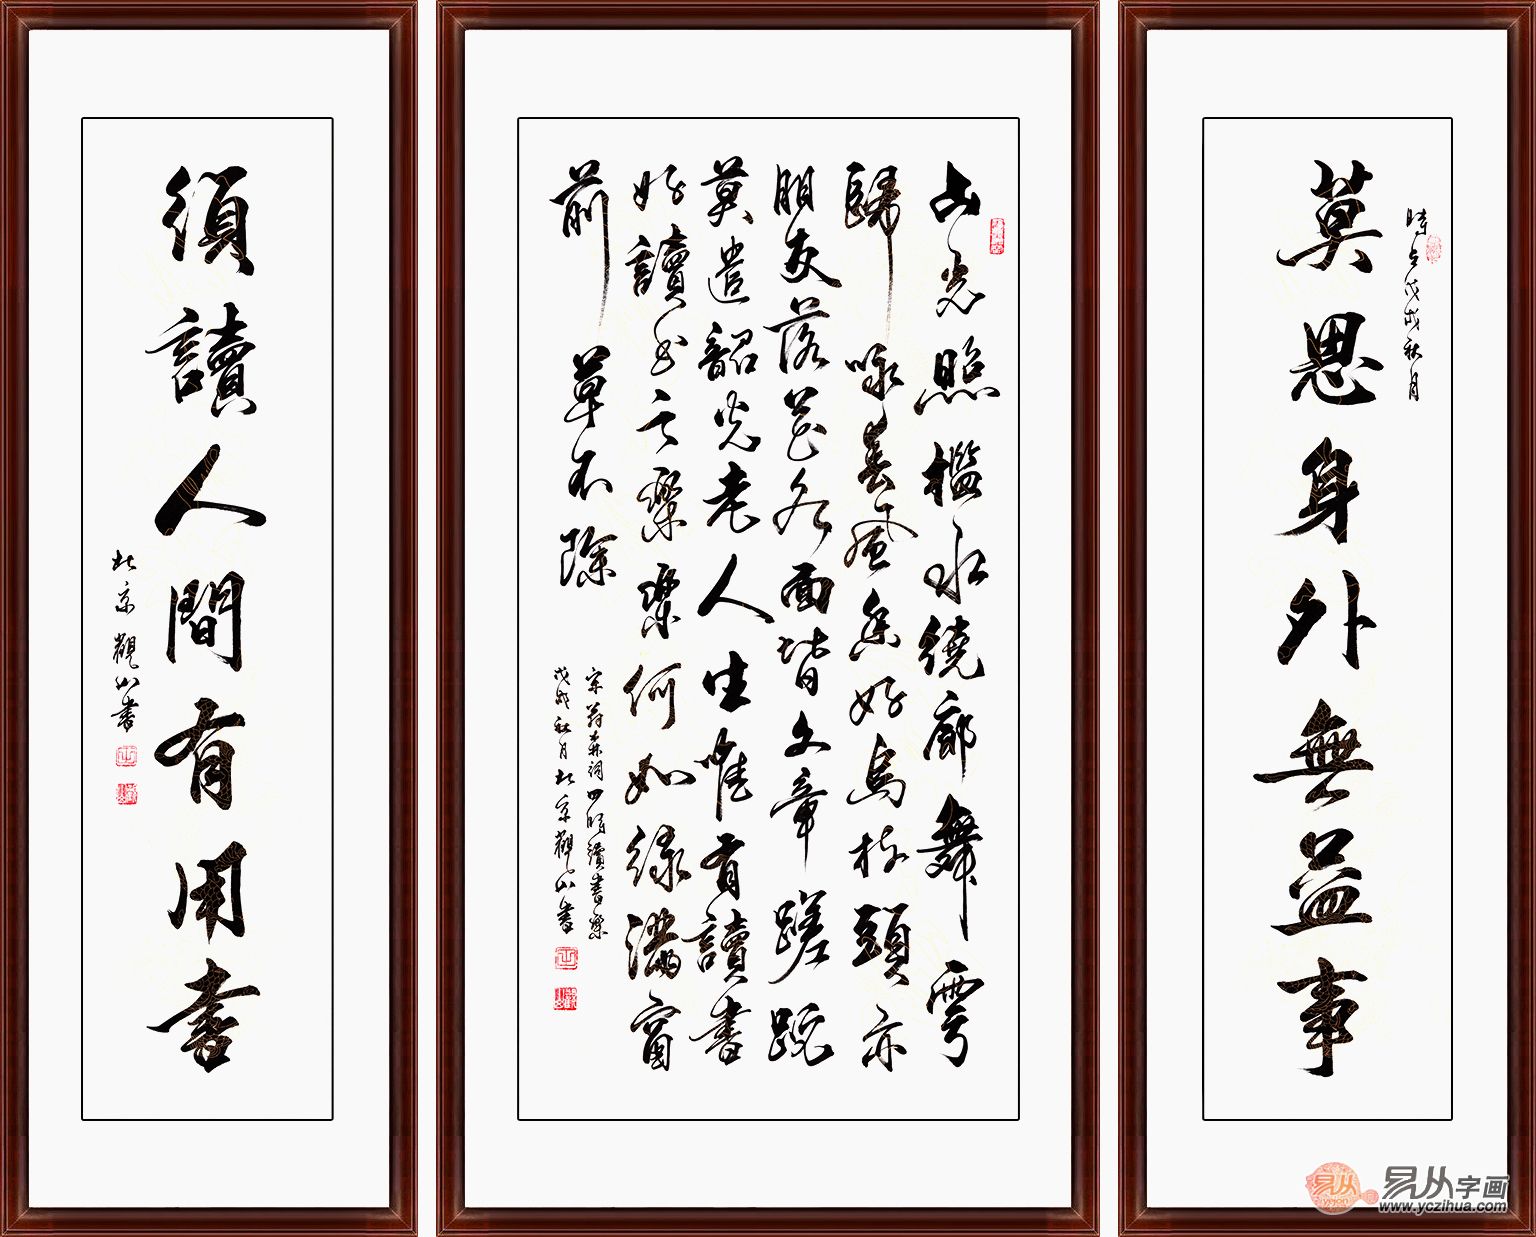 時在戊戌秋月
莫思身外無益事
山光照檻水繞廊舞雩
歸咏春風香好鳥枝頭亦
朋友落花水面皆文章蹉跎
莫遣韶光老人生唯有讀書
好讀书之樂樂何如綠滿窗
前草不除
宋翁森詞四時讀書樂
戊戌秋月北京觀山書
須讀人間有用書
北京觀山書
易从
yicon
易从字画
www.yczihua.com